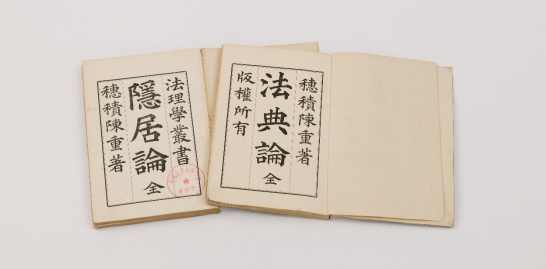 法理學叢書
隱居論 全
穗積陳重著
穗積陳重著
法典論 全
版權所有